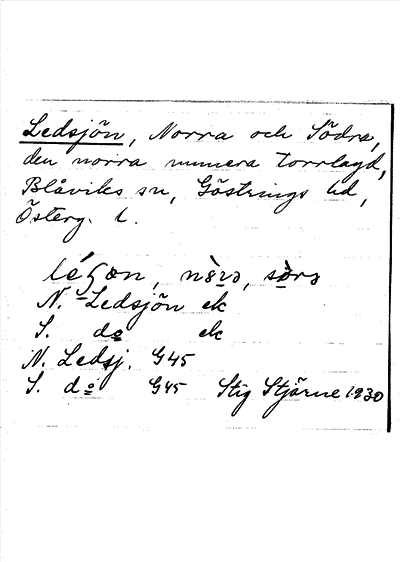 Ledsjön, Norra och Södra,
den norra numera torrlagd,
Blåviks sn, Göstrings hd,
Österg. l.
N. Ledsjön ek
S. do ek
N. Ledsj. G45
S. do G45 Stig Stjärne 1930